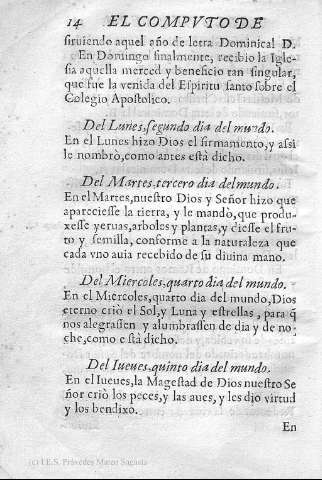 14 EL COMPVTO DE
siruiendo aquel año de letra Dominical D.
En Domingo finalmente, recibio la Igle-
sia aquella merced y beneficio tan singular,
que fue la venida del Espiritu santo sobre el
Colegio Apostolico.
Del Lunes, segundo dia del mundo.
En el Lunes hizo Dios el firmamento, y assi
le nombrò, como antes està dicho.
Del Martes, tercero dia del mundo.
En el Martes, nuestro Dios y Señor hizo que
apareciesse la tierra, y le mandò, que produ-
xesse yeruas, arboles y plantas, y diesse el fru-
to y semilla, conforme a la naturaleza que
cada vno auia recebido de su diuina mano.
Del Miercoles, quarto dia del mundo.
En el Miercoles, quarto dia del mundo, Dios
eterno criò el Sol, y Luna y estrellas, para q̃
nos alegrassen y alumbrassen de dia y de no-
che, como està dicho.
Del Iueues, quinto dia del mundo.
En el Iueues, la Magestad de Dios nuestro Se
ñor criò los peces, y las aues, y les dio virtud
y los bendixo.
En
(c) I.E.S. Práxedes Mateo Sagasta